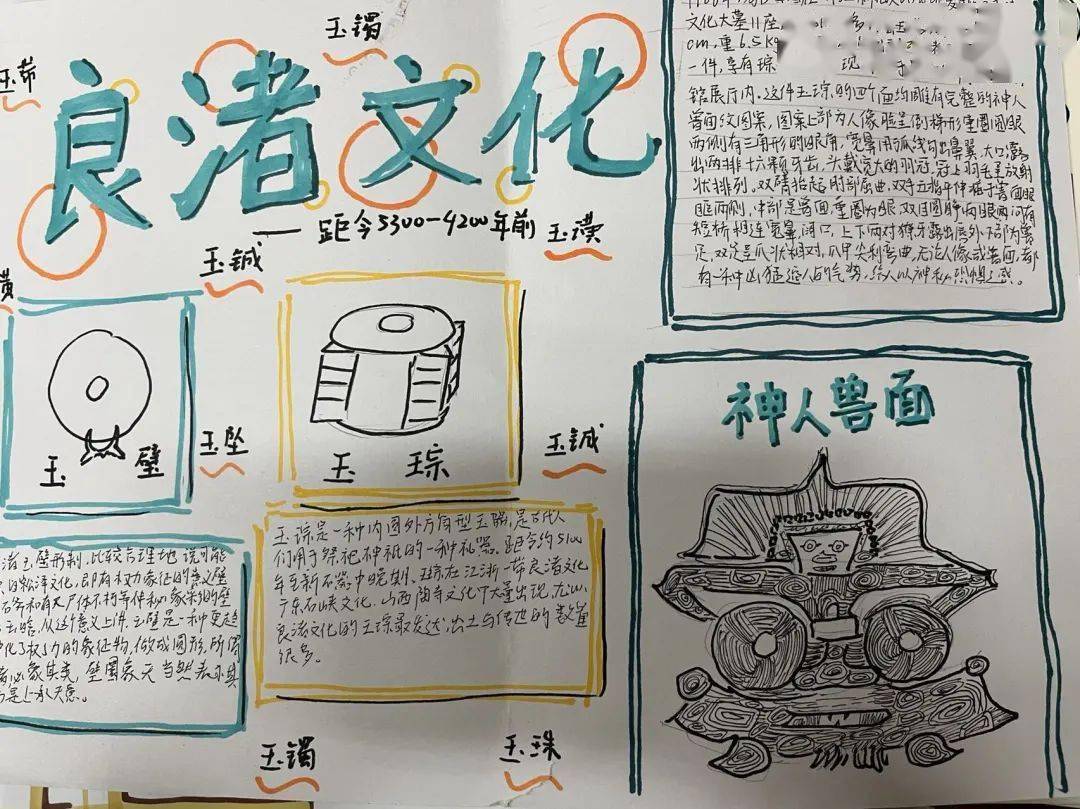 玉镯
良渚文化
距今5300-4200年前
玉璜
玉钺
文化大墓11座
cm,重6.5kg
一件,享有琮
馆展厅内。这件玉琮的四个面均雕有完整的神人
兽面纹图案,图案上部为人像脸呈倒梯形重圈圆眼
两侧有三角形的眼角,宽鼻用弧线勾出鼻翼,大口露
出两排十六颗牙齿,头戴宽大的羽冠,冠上羽毛呈放射
状排列。双臂抬起肘部屈曲,双手五指平伸插于兽面眼
眶两侧,中部是兽面,重圈为眼,双目圆睁两眼
短桥相连宽鼻阔口,上下两对獠牙露出唇外,下部为兽
足,双足呈爪状相对,爪甲尖利弯曲,无论人像或兽面,都
有一种凶猛逼人的气势,给人以神秘恐惧之感。
玉璧
玉坠
玉琮
玉钺
神人兽面
玉琮是一种内圆外方筒型玉器,是古代人
们用于祭祀神祇的一种礼器。距今约5100
年至新石器中晚期,玉琮在江浙一带良渚文化
广东石峡文化、山西陶寺文化中大量出现,尤以
良渚文化的玉琮最发达,出土与传世的数量
很多。
玉璧形制,比较合理地说可能
文化,即有权力象征的意义璧
从这个意义上讲,玉璧是一种更趋
化了权力的象征物,做成圆形,所谓
必象其类,璧圆象天当然表示其
是上承天意。
玉镯
玉珠